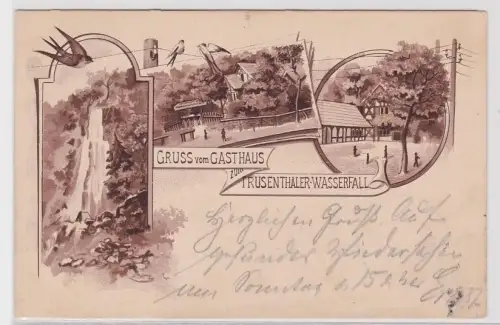 GRUSS vom GASTHAUS
zum
TRUSENTHALER-WASSERFALL
Herzlichen Gruß Auf
gesundes Wiedersehen
am Sonntag d. 15.